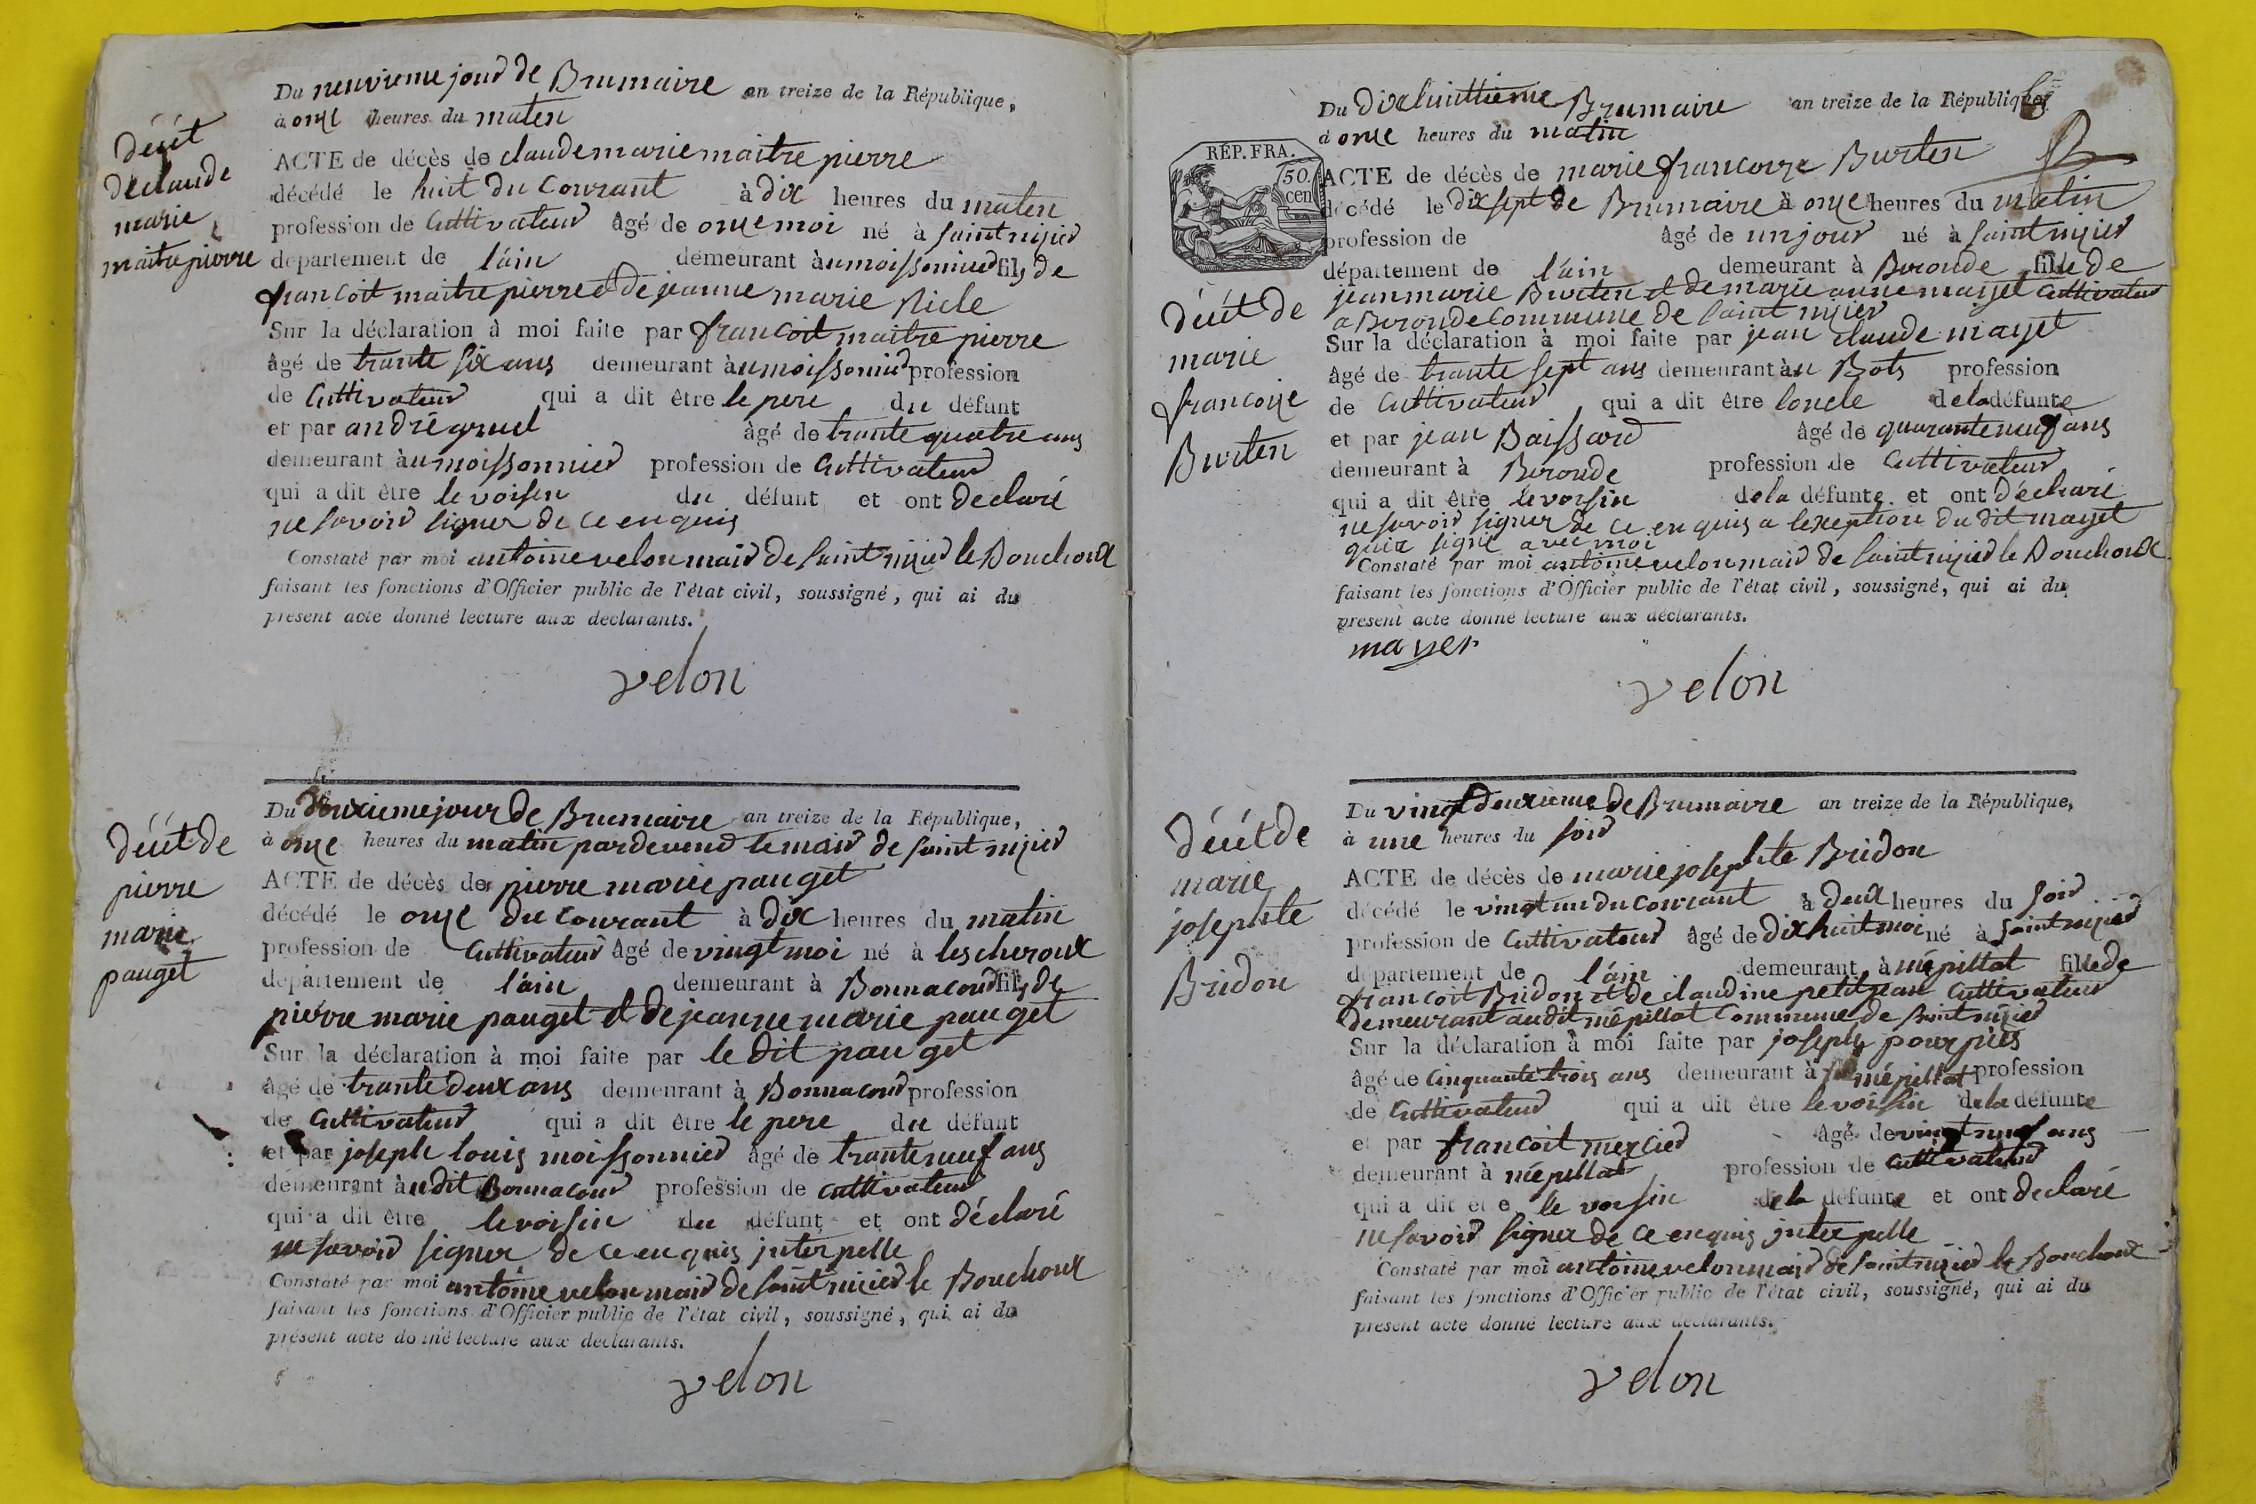 Du neuvieme jour de Brumaire an treize de la République,
à onze heures du maten
ACTE de décès de claude marie maitre pierre
décédé le huit du Courant à dix heures du maten
profession de Cultivateur âgé de onze moi né à saint nizier
département de l'ain demeurant àu moissonnier fils de
françoit maitre pierre et de jeanne marie
Sur la déclaration à moi faite par françoit maitre pierre
âgé de trante six ans demeurant àu moissonnier profession
de Cultivateur qui a dit être le pere du défunt
et par andré gruel âgé de trante quatre ans
demeurant àu moissonnier profession de Cultivateur
qui a dit être le voisen du défunt et ont declaré
ne savoir signer de ce enquis
Constaté par moi antoine velon mair de saint nizier le Bouchoux
faisant les fonctions d'Officier public de l'état civil, soussigné, qui ai du
présent acte donné lecture aux déclarants.
velon
décét
de claude
marie
maitre pierre
Du douxieme jour de Brumaire an treize de la République,
à onze heures du matin pardevend le mair de saint nizier
ACTE de décès de pierre marie pauget
décédé le onze du courant à dix heures du matin
profession de Cultivateur âgé de vingt moi né à lescheroux
département de l'ain demeurant à Bonnacour fils de
pierre marie pauget et de jeanne marie pauget
Sur la déclaration à moi faite par le dit pauget
âgé de trante deux ans demeurant à Bonnacour profession
de Cultivateur qui a dit être le pere du défunt
et par joseph louis moissonnier âgé de trante neuf ans
demeurant àudit Bonnacour profession de cultivateur
qui a dit être le voisin du défunt et ont déclaré
ne savoir signer de ce enquis jnterpelle
Constaté par moi antoine velon mair de saint nizier le Bouchoux
faisant les fonctions d'Officier public de l'état civil, soussigné, qui ai du
présent acte donné lecture aux déclarants.
velon
décét de
pierre
marie
pauget
Du dixhuittieme Brumaire an treize de la République
à onze heures du matin
ACTE de décès de marie francoize Burten
décédé le dix sept de Brumaire à onze heures du matin
profession de âgé de un jour né à saint nizier
département de l'ain demeurant à Beronde fille de
jean marie Burten et de marie anne mayet Cultivateur
a Beronde Commune de saint nizier
Sur la déclaration à moi faite par jean claude mayet
âgé de trante sept ans demeurant àu Bots profession
de Cultivateur qui a dit être loncle de la défunte
et par jean Boissard âgé de quarante neuf ans
demeurant à Beronde profession de Cultivateur
qui a dit être le voisin de la défunte et ont déclaré
ne savoir signer de ce enquis a lexeption du dit mayet
qui a signé avec moi
Constaté par moi antoine velon mair de saint nizier le Bouchoux
faisant les fonctions d'Officier public de l'état civil, soussigné, qui ai du
présent acte donné lecture aux déclarants.
mayer
velon
RÉP. FRA.
50.
cen
décét de
marie
francoize
Burten
Du vingt deuxieme de Brumaire an treize de la République,
à une heures du soir
ACTE de décès de marie josephte Bridon
décédé le vingt un du courant à deux heures du soir
profession de Cultivateur âgé de dix huit moi né à saint nizier
département de l'ain demeurant à mépillat fille de
françoit Bridon et de claudine petitjean Cultivateur
demeurant audit mépillat Commune de saint nizier
Sur la déclaration à moi faite par joseph
âgé de cinquante trois ans demeurant à mépillat profession
de Cultivateur qui a dit être le voisin de la défunte
et par françoit mercier âgé de vingt neuf ans
demeurant à mépillat profession de Cultivateur
qui a dit être le voisin de la défunte et ont declaré
ne savoir signer de ce enquis jnterpelle
Constaté par moi antoine velon mair de saint nizier le Bouchoux
faisant les fonctions d'Officier public de l'état civil, soussigné, qui ai du
présent acte donné lecture aux déclarants.
velon
décét de
marie
josephte
Bridon